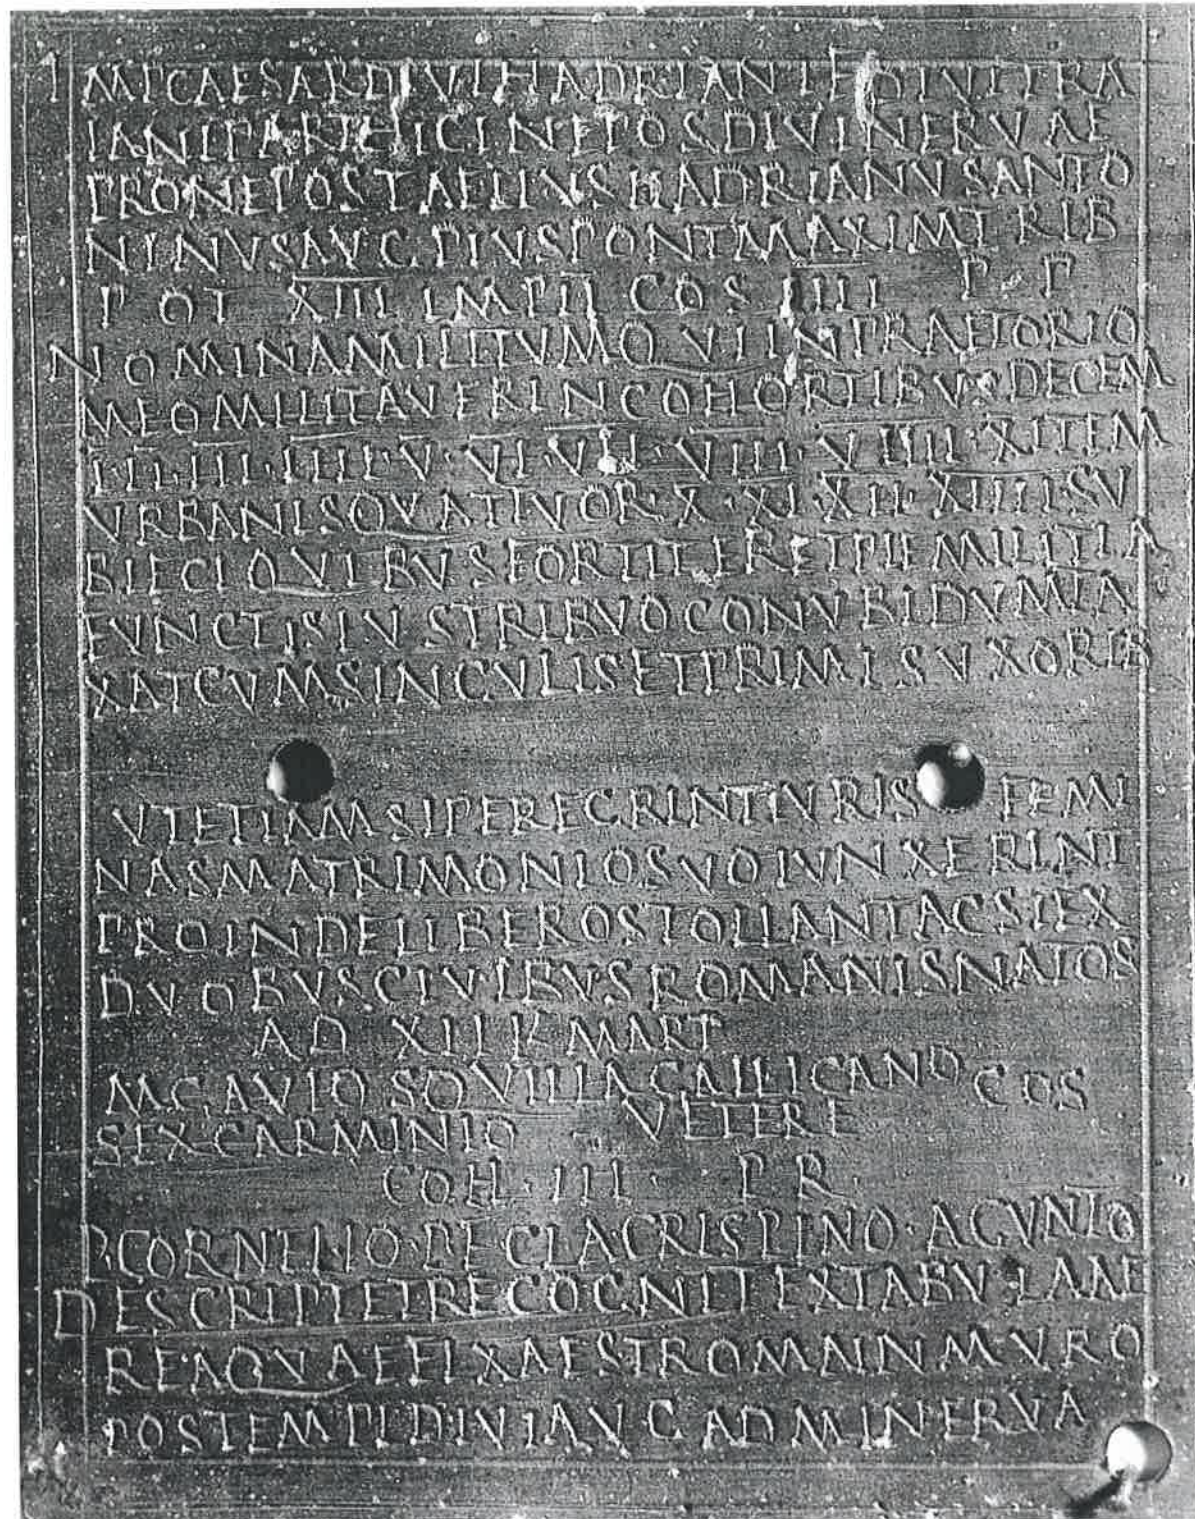 IMP CAESAR DIVI HADRIANI F DIVI TRA
IANI PARTHICI NEPOS DIVI NERVAE
PRONEPOS T AELIVS HADRIANVS ANTO
NINVS AVG PIVS PONT MAXIM TRIB
POT XIII IMP II COS IIII P · P
NOMINA MILITVM QVI IN PRAETORIO
MEO MILITAVER IN COHORTIBVS DECEM
I · II · III · IIII · V · VI · VII · VIII · VIIII · X ITEM
VRBANIS QVATTVOR · X · XI · XII · XIIII · SV
BIECI QVIBVS FORTITER ET PIE MILITIA
FVNCTIS IVS TRIBVO CONVBI DVMTA
XAT CVM SINGVLIS ET PRIMIS VXORIB
VT ETIAM SI PEREGRINI IVRIS FEMI
NAS MATRIMONIO SVO IVNXERINT
PROINDE LIBEROS TOLLANT AC SI EX
DVOBVS CIVIBVS ROMANIS NATOS
A D XII K MART
M GAVIO SQVILLA GALLICANO COS
SEX CARMINIO VETERE
COH · III · PR
P · CORNELIO · P F CLA CRISPINO · AGVNTO
DESCRIPT ET RECOGNIT EX TABVLA AE
REA QVAE FIXA EST ROMA IN MVRO
POS TEMPL DIVI AVG AD MINERVA